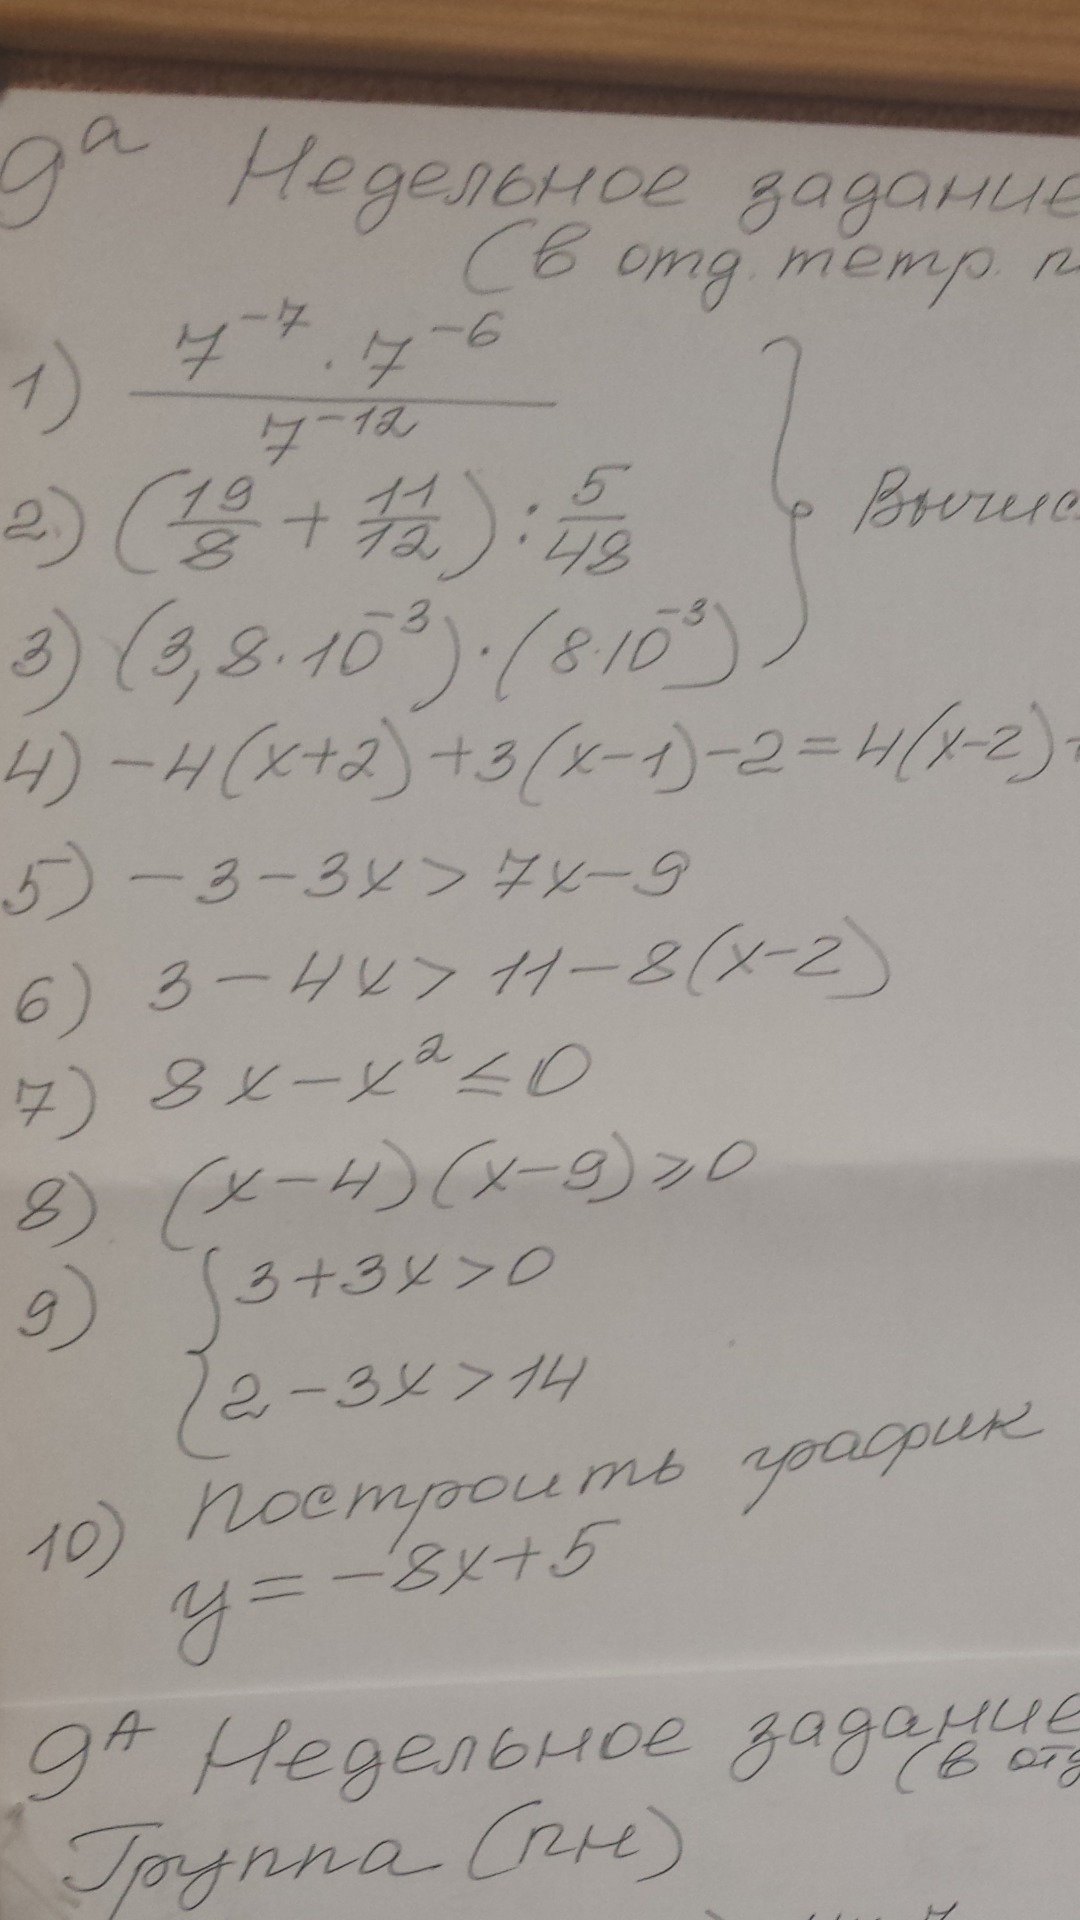 9ᵃ Недельное задание
(в отд. тетр.
1) 7⁻⁷ · 7⁻⁶ / 7⁻¹²
2) (19/8 + 11/12) : 5/48
Вычис
3) (3,8 · 10⁻³) · (8 · 10⁻³)
4) -4(x+2)+3(x-1)-2=4(x-2)+
5) -3-3x>7x-9
6) 3-4x>11-8(x-2)
7) 8x-x²≤0
8) (x-4)(x-9)≥0
9) { 3+3x>0
2-3x>14
10) Построить график
y=-8x+5
9ᴬ Недельное задание
(в отд
Группа (пн)